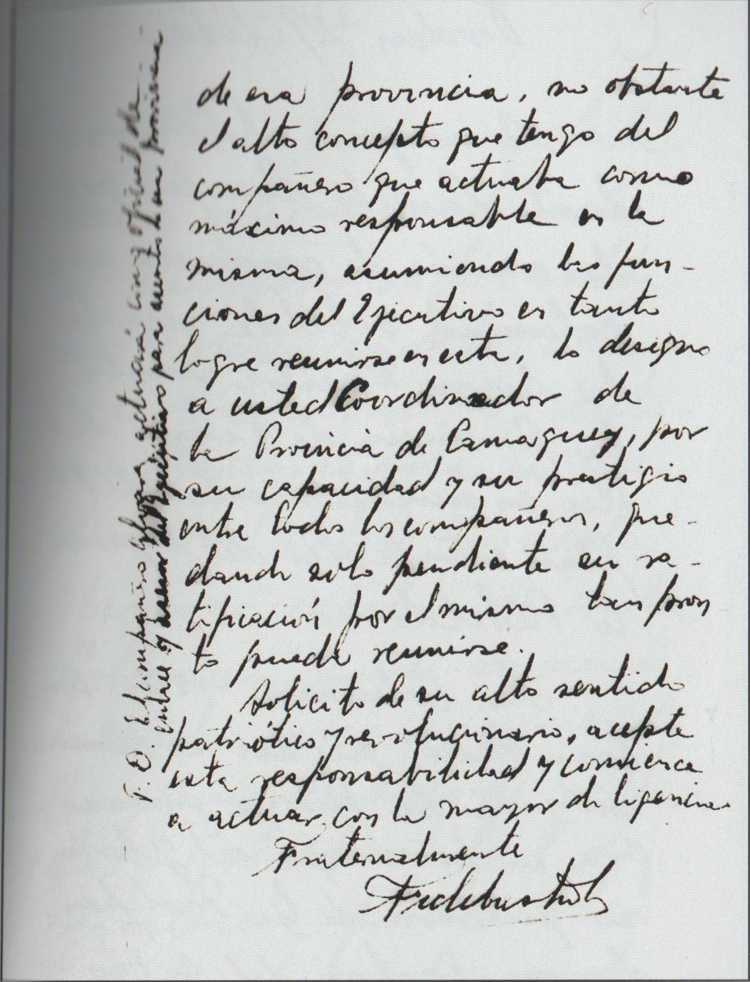 de esa provincia, no obstante
el alto concepto que tengo del
compañero que actuaba como
máximo responsable en la
misma, asumiendo las fun-
ciones del Ejecutivo en tanto
logre reunirse este, lo designo
a usted Coordinador de
la Provincia de Camaguey, por
su capacidad y su prestigio
entre todos los compañeros, que-
dando sólo pendiente su ra-
tificación por el mismo tan pron
to pueda reunirse.
Solicito de su alto sentido
patriótico y revolucionario, acepte
esta responsabilidad y comience
a actuar con la mayor diligencia.
Fraternalmente
Fidel Castro
P.D. El compañero actuará como oficial de
enlace y asesor del Ejecutivo para asuntos de esa provincia